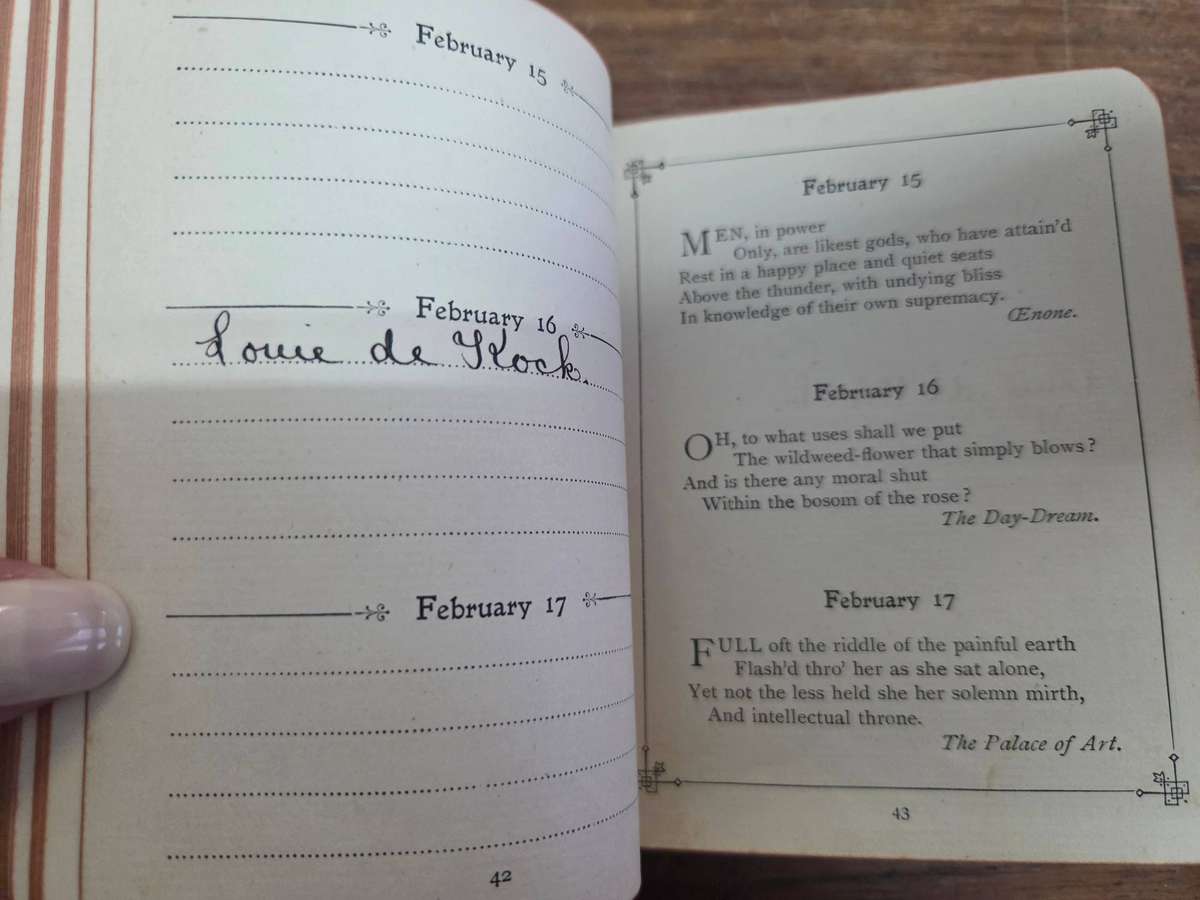 February 15
February 16
Louie de Kock.
February 17
42
February 15
MEN, in power
Only, are likest gods, who have attain'd
Rest in a happy place and quiet seats
Above the thunder, with undying bliss
In knowledge of their own supremacy.
Œnone.
February 16
OH, to what uses shall we put
The wildweed-flower that simply blows?
And is there any moral shut
Within the bosom of the rose?
The Day-Dream.
February 17
FULL oft the riddle of the painful earth
Flash'd thro' her as she sat alone,
Yet not the less held she her solemn mirth,
And intellectual throne.
The Palace of Art.
43